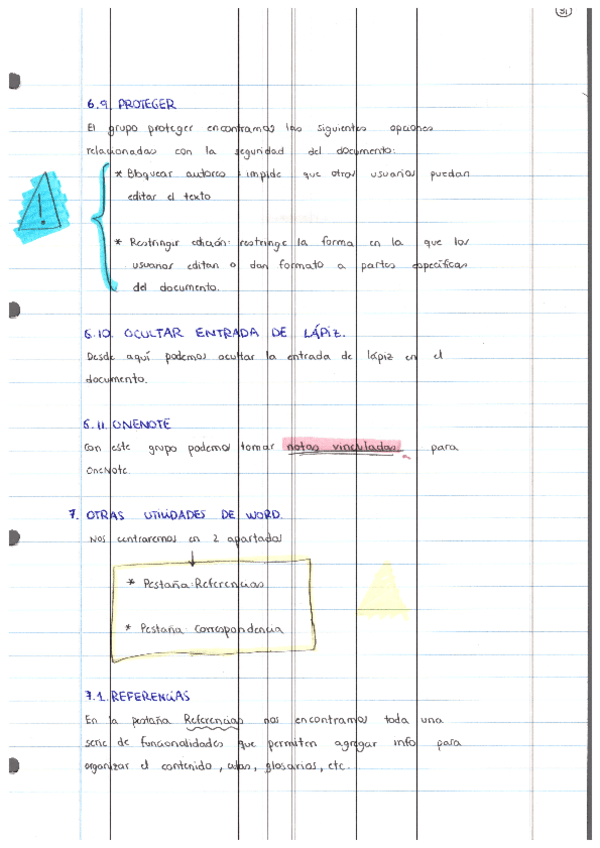 31
6.9. PROTEGER
El grupo proteger encontramos las siguientes opciones
relacionadas con la seguridad del documento:
* Bloquear autores: impide que otros usuarios puedan
editar el texto
* Restringir edición: restringe la forma en la que los
usuarios editan o dan formato a partes específicas
del documento.
6.10. OCULTAR ENTRADA DE LÁPIZ.
Desde aquí podemos ocultar la entrada de lápiz en el
documento.
6.11. ONENOTE
Con este grupo podemos tomar notas vinculadas para
OneNote.
7. OTRAS UTILIDADES DE WORD.
Nos centraremos en 2 apartados
* Pestaña Referencias
* Pestaña correspondencia
7.1. REFERENCIAS
En la pestaña Referencias nos encontramos toda una
serie de funcionalidades que permiten agregar info para
organizar el contenido, citas, glosarios, etc.